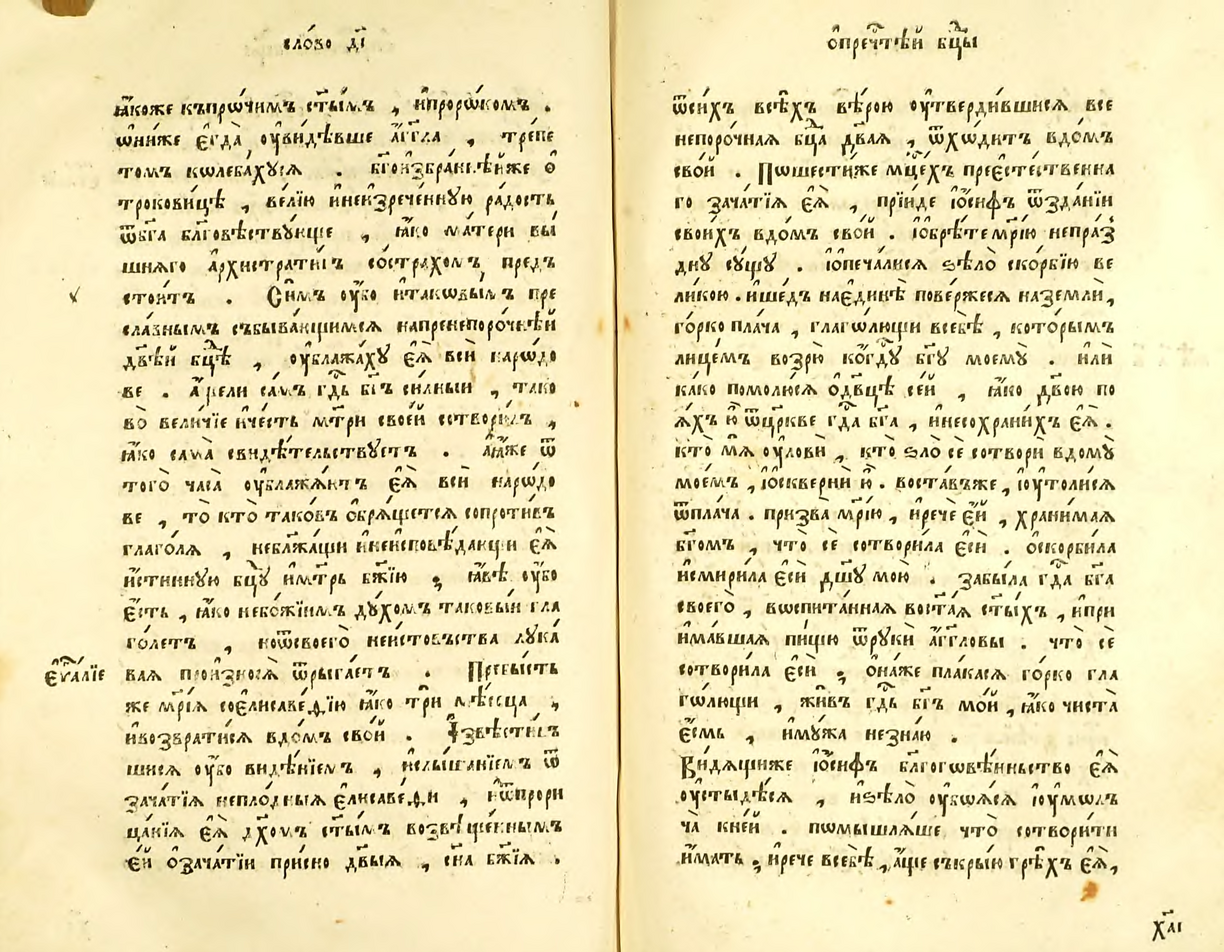 сло́во д҃і
ꙗ҆́коже къпрѡ́чимъ ст҃ы́мъ , и҆проро́комъ .
ѡ҆ни́же є҆гда̀ оу҆ви́дѣвше а҆́гг҃ла , тре́пе
томъ кѡлеба́хꙋсѧ . бг҃ои҆збра́ннѣйже ѻ҆
трокови́цѣ , ве́лїю и҆неи҆зрече́ннꙋю ра́дость
ѿбг҃а бл҃говѣ́ствꙋюще , ꙗ҆́ко ма́тери вы́
шнѧго а҆рхистрати́гъ состра́хомъ предъ
стои́тъ . Си́мъ оу҆́бо и҆такѡвы́мъ пре
сла́внымъ събыва́ющимсѧ напренепоро́чнѣй
дв҃ѣй бц҃ѣ , оу҆блажа́хꙋ є҆ѧ̀ всѝ наро́до
ве . А҆́щели са́мъ гд҃ь бг҃ъ си́лныи , тако
во̀ вели́чїе и҆че́сть мт҃ри свое́й сотвори́лъ ,
ꙗ҆́ко сама̀ свидѣ́тельствꙋетъ . а҆ꙗ҆́же ѿ
того̀ часа̀ оу҆блажа́ютъ є҆ѧ̀ всѝ наро́до
ве , то̀ кто̀ тако́въ ѻ҆брѧ́щетсѧ сопроти́въ
глаго́лѧ , неблажа́щи и҆неи҆сповѣ́дающи є҆ѧ̀
и҆́стиннꙋю бц҃ꙋ и҆мт҃рь бж҃їю ; ꙗ҆́вѣ оу҆́бо
є҆́сть , ꙗ҆́ко небо́жїимъ дꙋ́хомъ таковы́й гла
го́летъ , ноѿсвоегѡ̀ неи́стовъства лꙋка́
ваѧ произносѧ̀ ѿрыга́етъ . Пребы́сть
є҆ѵⷢ҇а́лїе
же мр҃і́ѧ соє҆лисаве́ѳїю ꙗ҆́ко трѝ мѣ́сѧца ,
и҆возврати́сѧ вдо́мъ сво́й . И҆звѣсти́въ
шисѧ оу҆́бо видѣ́нїемъ , и҆слы́шанїемъ ѿ
зача́тїѧ непло́дныѧ є҆лисаве́ѳи , и҆ѿпрори
ца́нїѧ є҆ѧ̀ дх҃омъ ст҃ы́мъ возвѣще́ннымъ
є҆́й ѻ҆зача́тїи при́сно дв҃ыѧ , сн҃а бж҃їѧ .
ѻ҆преч҃тѣй бц҃ы
ѿси́хъ всѣ́хъ вѣ́рою оу҆тверди́вшисѧ все
непоро́чнаѧ бц҃а дв҃аѧ , ѿхѡ́дитъ вдо́мъ
сво́й . Пѡше́стиже мц҃ехъ преє҆сте́ственна
го зача́тїѧ є҆ѧ̀ , прїи́де і҆ѡ́сифъ ѿзда́нїи
свои́хъ вдо́мъ сво́й . і҆ѻбрѣ́те мр҃і́ю непра́з
днꙋ сꙋ́щꙋ . і҆ѻпеча́лисѧ ѕѣло̀ ско́рбїю ве
ли́кою . и҆ше́дъ нає҆ди́нѣ пове́ржесѧ наземлѝ,
го́рко пла́ча , глаго́лющи всебѣ̀ , кото́рымъ
лице́мъ возрю̀ ко́гд҃ꙋ бг҃ꙋ моемꙋ̀ . и҆лѝ
ка́ко помолю́сѧ ѻ҆дв҃цѣ се́й , ꙗ҆́ко дв҃ою по
ѧ́хъ ю҆̀ ѿцр҃кве гд҃а бг҃а , и҆несохрани́хъ є҆ѧ̀ .
кто́ мѧ оу҆ловѝ , кто̀ ѕло̀ сѐ сотворѝ вдомꙋ̀
мое́мъ , і҆ѻскверни́ ю҆̀ . воста́въже , і҆оу҆толи́сѧ
ѿпла́ча . призва̀ мр҃і́ю , и҆речѐ є҆́й , храни́маѧ
бг҃омъ , что̀ сѐ сотвори́ла є҆сѝ . ѻ҆скорби́ла
и҆смири́ла є҆сѝ дш҃ꙋ мою̀ . забы́ла гд҃а бг҃а
своего̀ , вѡспита́ннаѧ воста́ѧ ст҃ы́хъ , и҆при
и҆ма́вшаѧ пи́щꙋ ѿрꙋкѝ а҆́гг҃ловы . что̀ сѐ
сотвори́ла є҆сѝ ; ѻ҆на́же пла́касѧ го́рко гла
гѡ́лющи , жи́въ гд҃ь бг҃ъ мо́й , ꙗ҆́ко чиста̀
є҆́смь , и҆мꙋ́жа незна́ю .
Ви́дѧщиже і҆ѡ́сифъ бл҃гогѡвѣ́иньство є҆ѧ̀
оу҆стыдѣ́сѧ , и҆ѕѣло̀ оу҆боѧ́сѧ і҆оу҆мо́лъ
ча кне́й . пѡмышлѧ́ше что̀ сотвори́ти
и҆́мать , и҆речѐ всебѣ̀ , а҆́ще съкры́ю грѣ́хъ є҆ѧ̀,
х҃аі